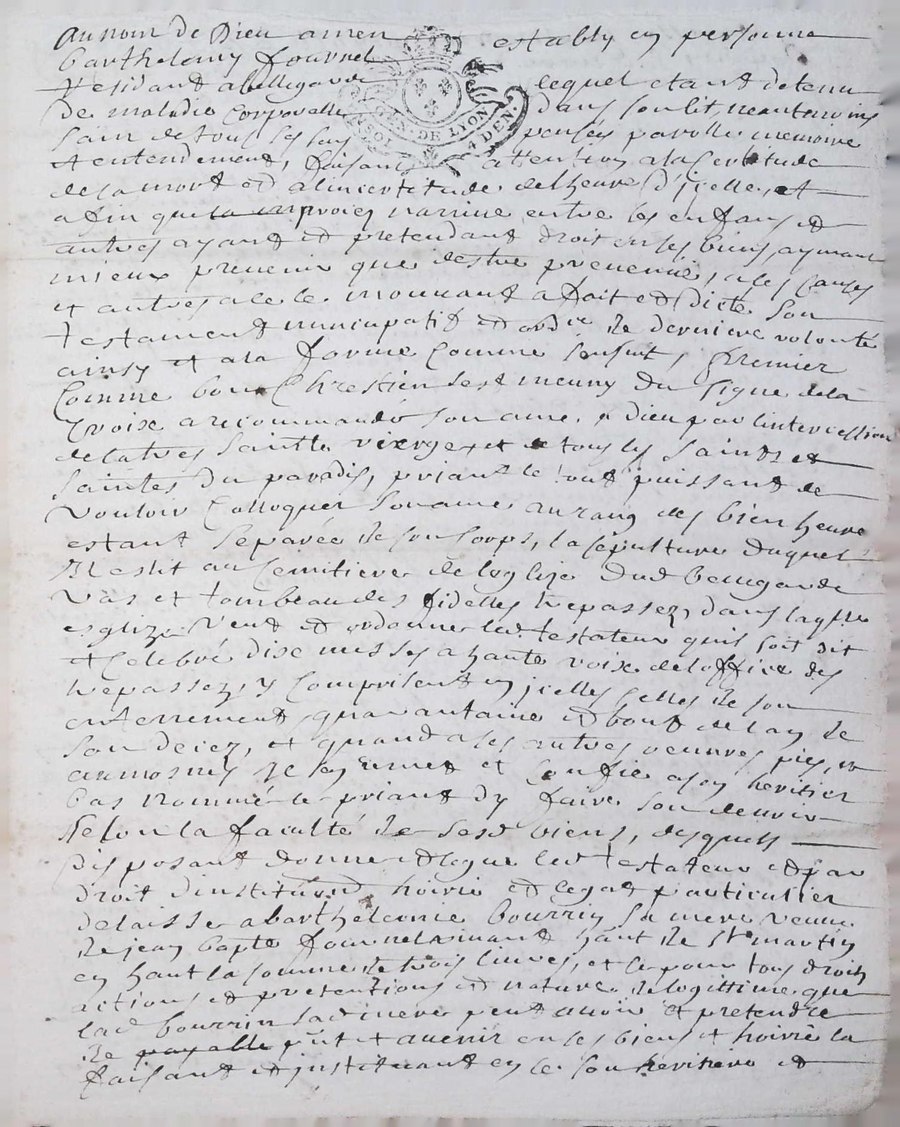 au nom de Dieu amen estably en personne
barthelemy fournel
residant a bellegarde lequel etant detenu
de maladie corporelle dans son lit, neantmoins
sain de tous ses sens pensées parolle memoire
et entendement, faisant attention a la certitude
de la mort et a l'incertitude de l'heure d'icelle, et
afin que n'arrive entre les enfans et
autres ayant et pretendant droit en ses biens aymant
mieux prevenir que destre prevenue, a les causes
et autres a ce le mouvant a fait et dicté son
testament nuncupatif et ordre de derniere volonté
ainsy et a la forme comme sensuit, Premier
Comme bon Chrestien sest meuny du signe de la
Croix a recommandé son ame a dieu par l'intercession
de la tres sainte vierge et de tous les saints et
saintes du paradis, priant le tout puissant de
vouloir Colloquer son ame au rang des bien heure
estant separée de son corps, la sepulture duquel
Il eslit au Cemitiere de leglize dud bellegarde
vas et tombeau des fidelles trepassez, dans laqlle
esglize veut et ordonne led testateur quil soit dit
et Celebré dix messes a haute voix de loffice des
trepassez y comprises en icelles celles de son
enterrement, quarantaine et bout de lan de
son decez, et quand a ses autres oeuvres pies, et
aumosnes se remet et Confie a son heritier
bas nommé le priant dy faire son devoir
selon la faculté de sesd biens, desquels
disposant donne et legue led testateur et par
droit d'institution hoirie et legat particulier
delaisse a barthelemie bourrin sa mere veuve
de jean bapte fournel vivant hant de st martin
en haut la somme de trois livres, et ce pour tous droits
actions et pretentions et nature de legittime que
lad bourrin sad mere peut avoir et pretendre
de payable pnt et avenir en ses biens et hoirie la
faisant et instituant en ce son heritiere et
SOL GEN. DE LYON 4 DEN